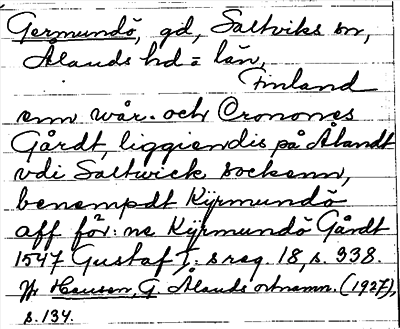 Germundö, gd, Saltviks sn,
Ålands hd = län,
Finland
enn wår och Cronones
Gårdt, liggiendis på Ålandt
vdi Saltwick sockenn,
benempdt Kÿrmundö
aff för:ne Kÿrmundö Gårdt
1547 Gustaf I: s reg. 18, s. 338.
Jfr Hausen, G Ålands ortnamn. (1927),
s. 134.